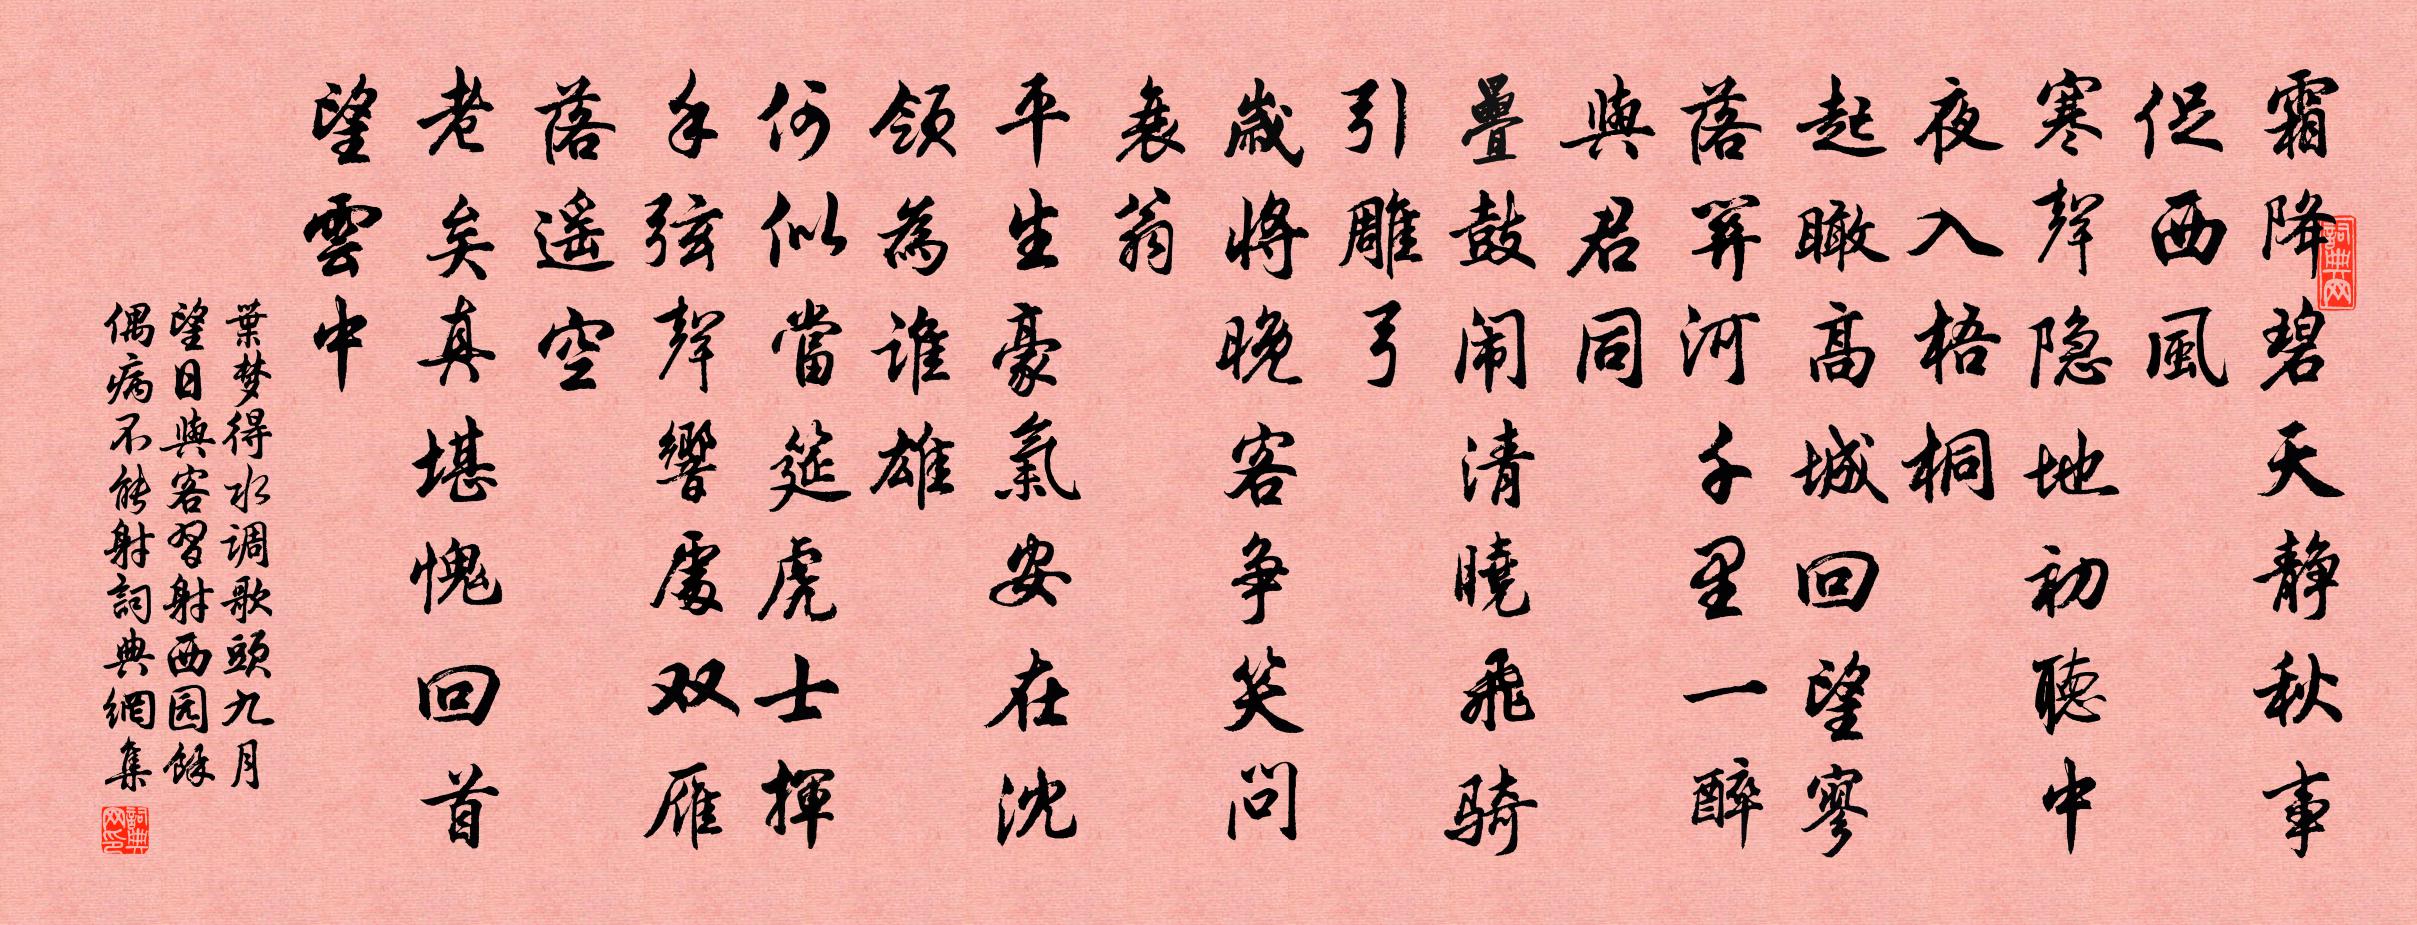 霜降碧天静秋事
促西風
寒聲隐地初聴中
夜入梧桐
起瞰高城回望寥
落関河千里一醉
與君同
疊鼓闹清曉飛骑
引雕弓
歲將晚客争笑問
衰翁
平生豪氣安在沈
領為誰雄
何似當筵虎士揮
手弦聲響處双雁
落遥空
老矣真堪愧回首
望雲中
葉梦得水调歌頭九月
望日與客習射西园餘
偶病不能射詞典網集
詞典网
詞典网印